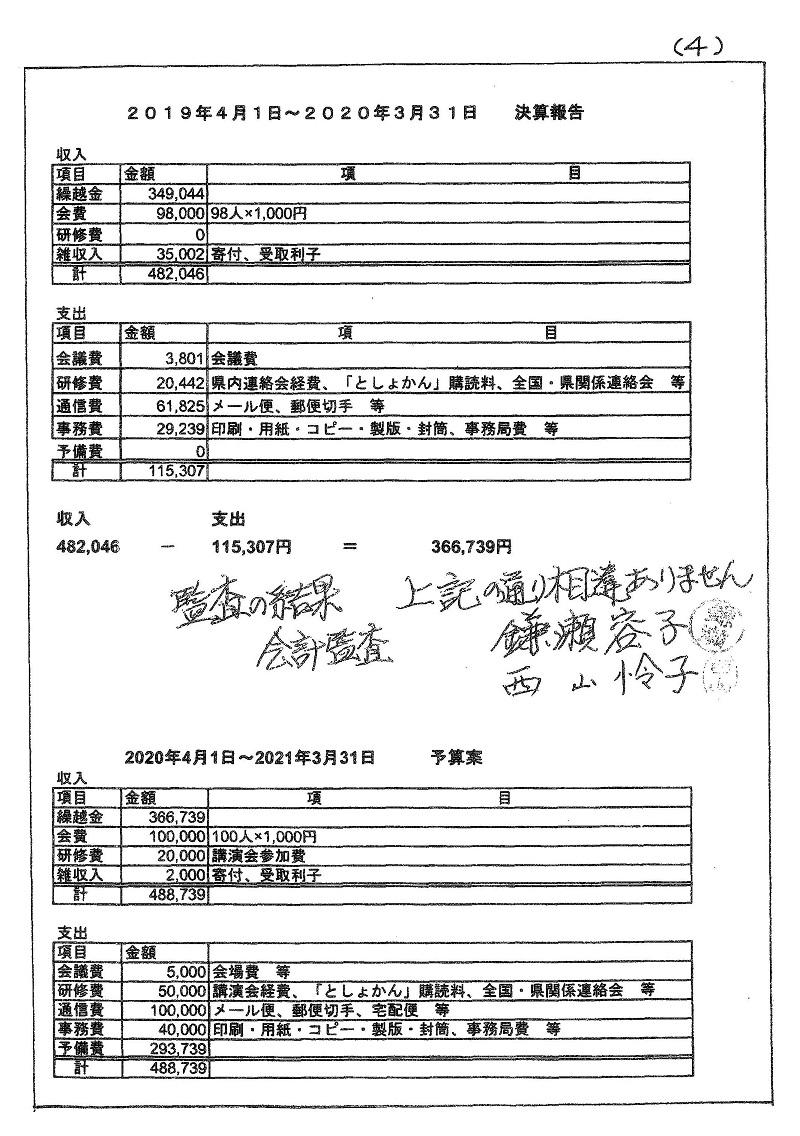 (4)
2019年4月1日～2020年3月31日 決算報告
収入
項目 金額 項 目
繰越金 349,044
会費 98,000 98人×1,000円
研修費 0
雑収入 35,002 寄付、受取利子
計 482,046
支出
項目 金額 項 目
会議費 3,801 会議費
研修費 20,442 県内連絡会経費、「としょかん」購読料、全国・県関係連絡会 等
通信費 61,825 メール便、郵便切手 等
事務費 29,239 印刷・用紙・コピー・製版・封筒、事務局費 等
予備費 0
計 115,307
収入 支出
482,046 － 115,307円 ＝ 366,739円
監査の結果 上記の通り相違ありません
会計監査 鎌瀬容子
西山怜子
2020年4月1日～2021年3月31日 予算案
収入
項目 金額 項 目
繰越金 366,739
会費 100,000 100人×1,000円
研修費 20,000 講演会参加費
雑収入 2,000 寄付、受取利子
計 488,739
支出
項目 金額
会議費 5,000 会場費 等
研修費 50,000 講演会経費、「としょかん」購読料、全国・県関係連絡会 等
通信費 100,000 メール便、郵便切手、宅配便 等
事務費 40,000 印刷・用紙・コピー・製版・封筒、事務局費 等
予備費 293,739
計 488,739